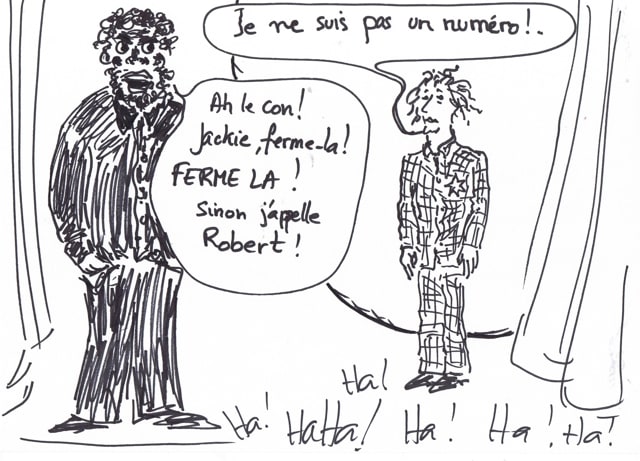 Je ne suis pas un numéro!.
Ah le con!
Jackie, ferme-la!
FERME LA !
Sinon j'appelle
Robert !
Ha!
Ha! HaHa! Ha! Ha! Ha!